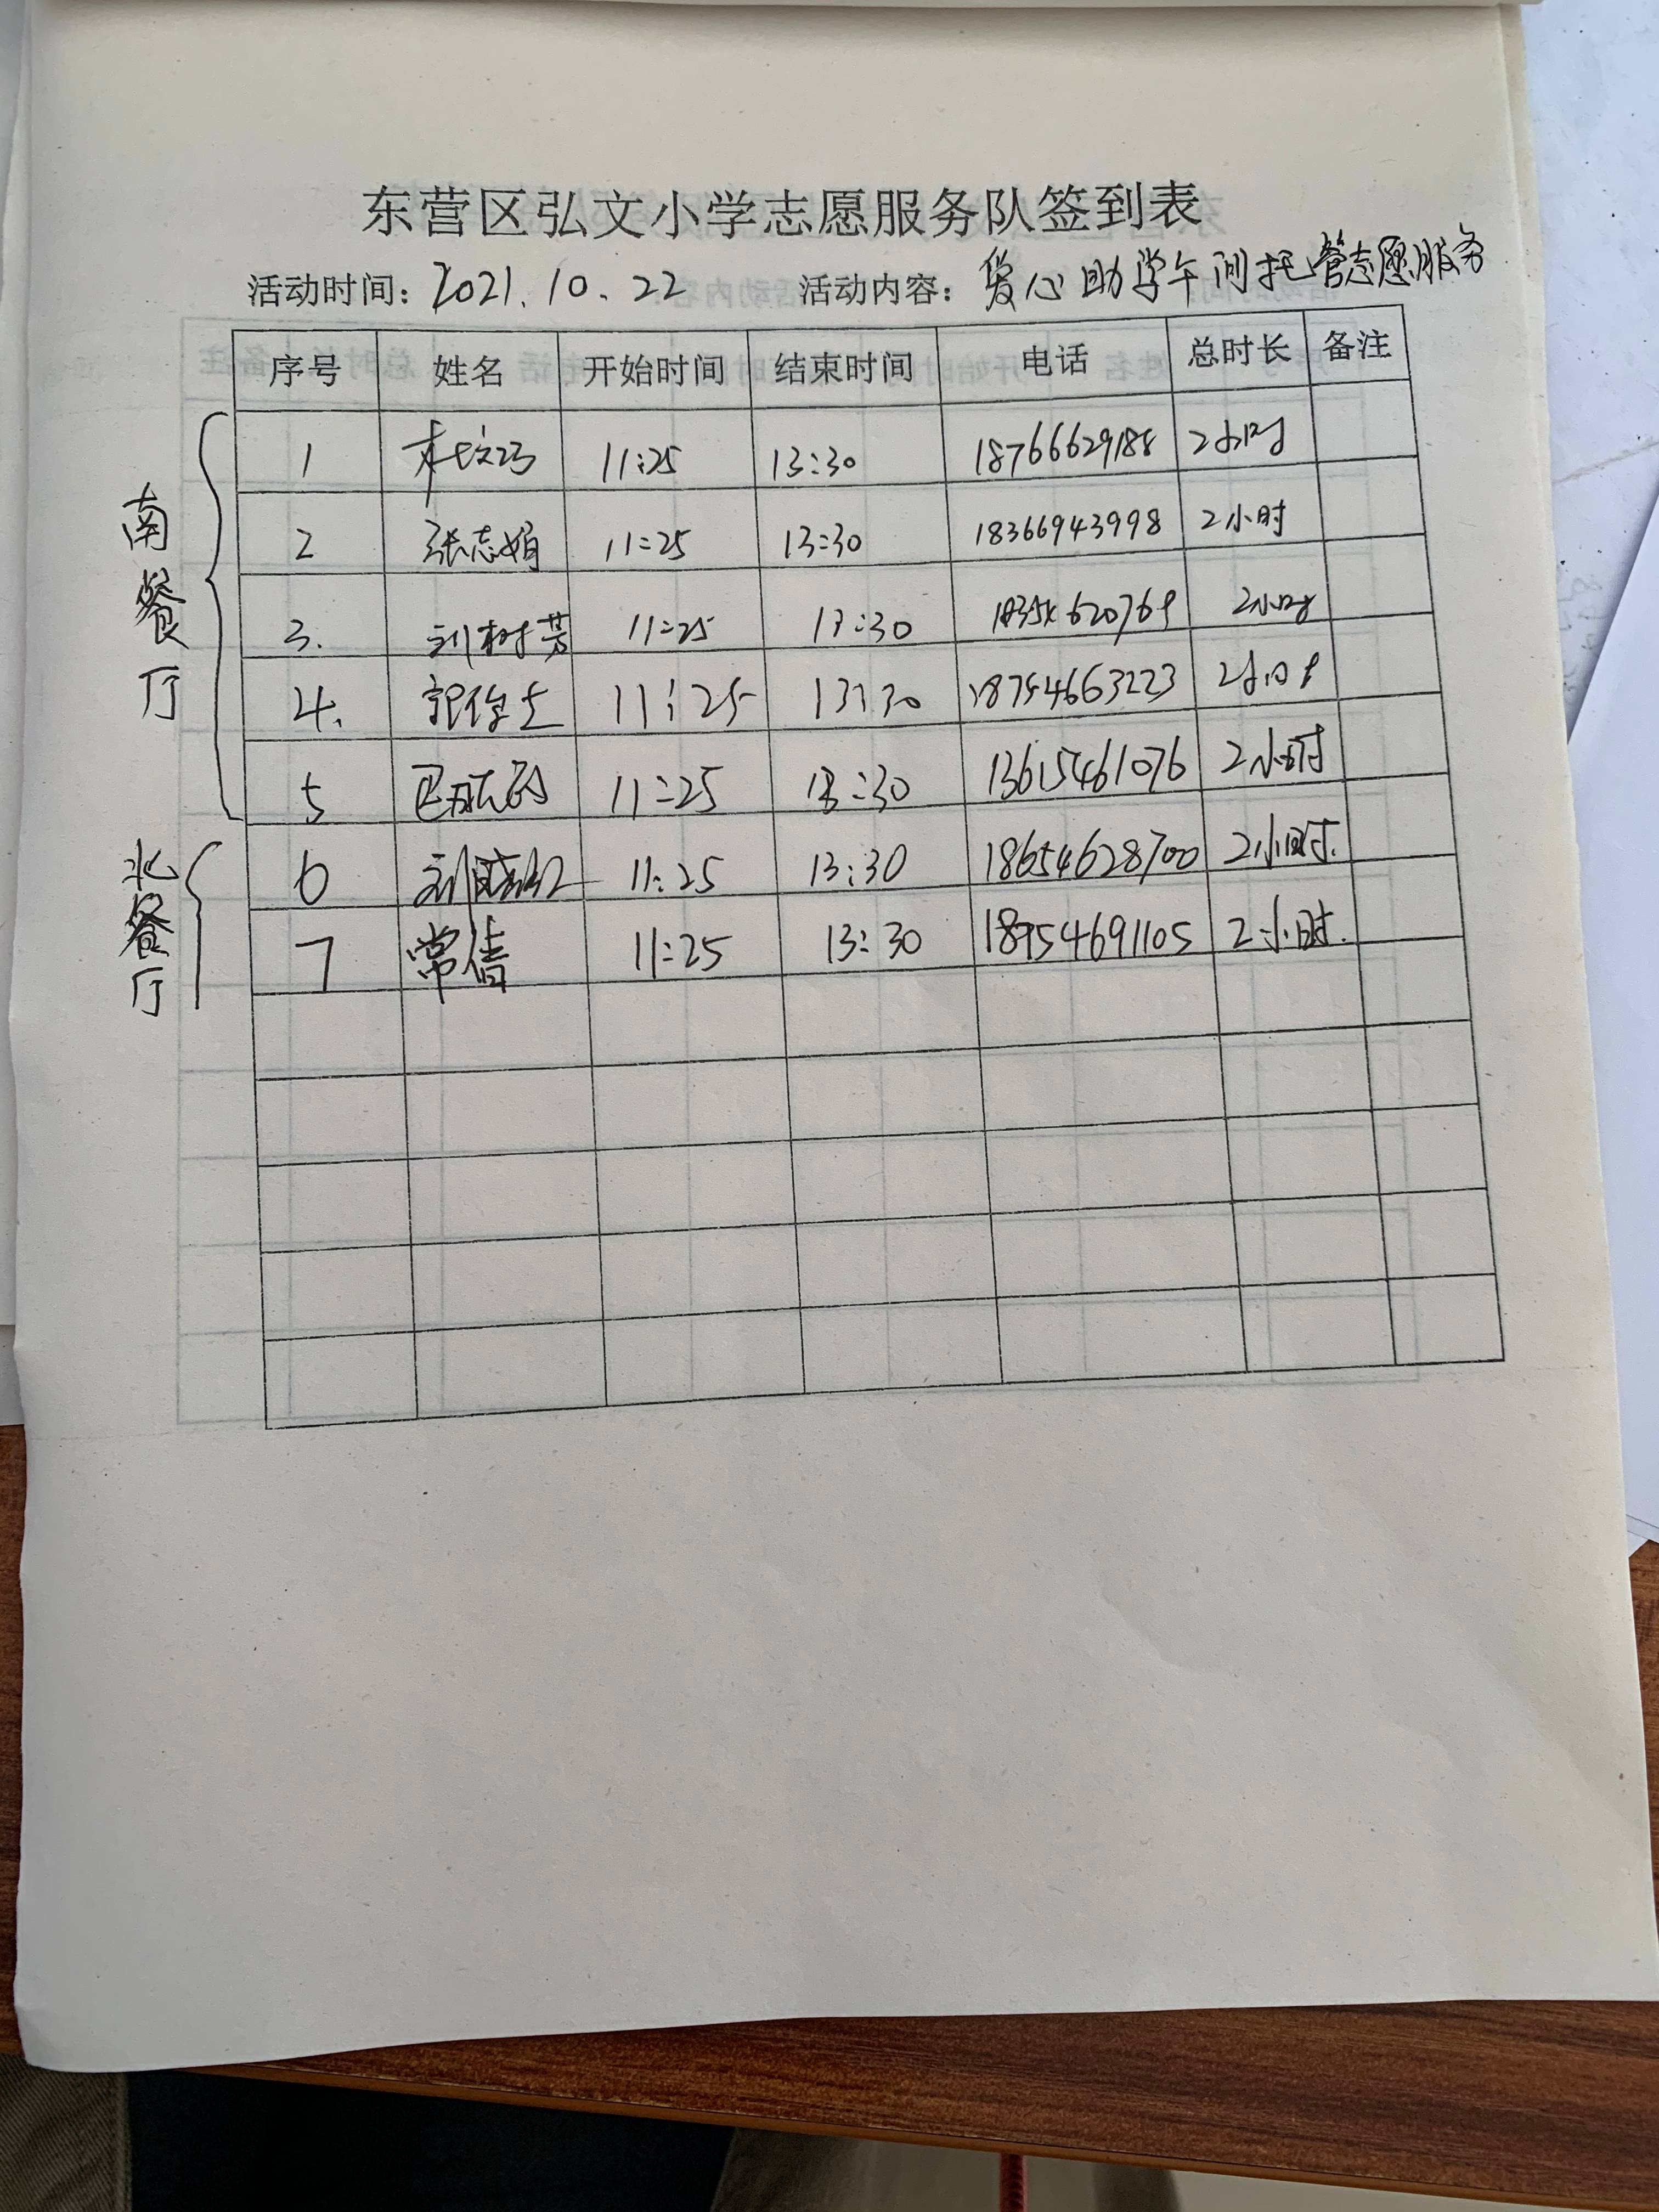 东营区弘文小学志愿服务队签到表
活动时间：2021.10.22 活动内容：爱心助学午间托管志愿服务
序号 姓名 开始时间 结束时间 电话 总时长 备注
南餐厅
1 11:25 13:30 18766629188 2小时
2 张志娟 11:25 13:30 18366943998 2小时
3. 刘树芳 11:25 13:30 2小时
4. 11:25 13:30 18754663223 2小时
5 11:25 13:30 13615461076 2小时
北餐厅
6 11:25 13:30 18654628700 2小时.
7 常倩 11:25 13:30 18954691105 2小时.